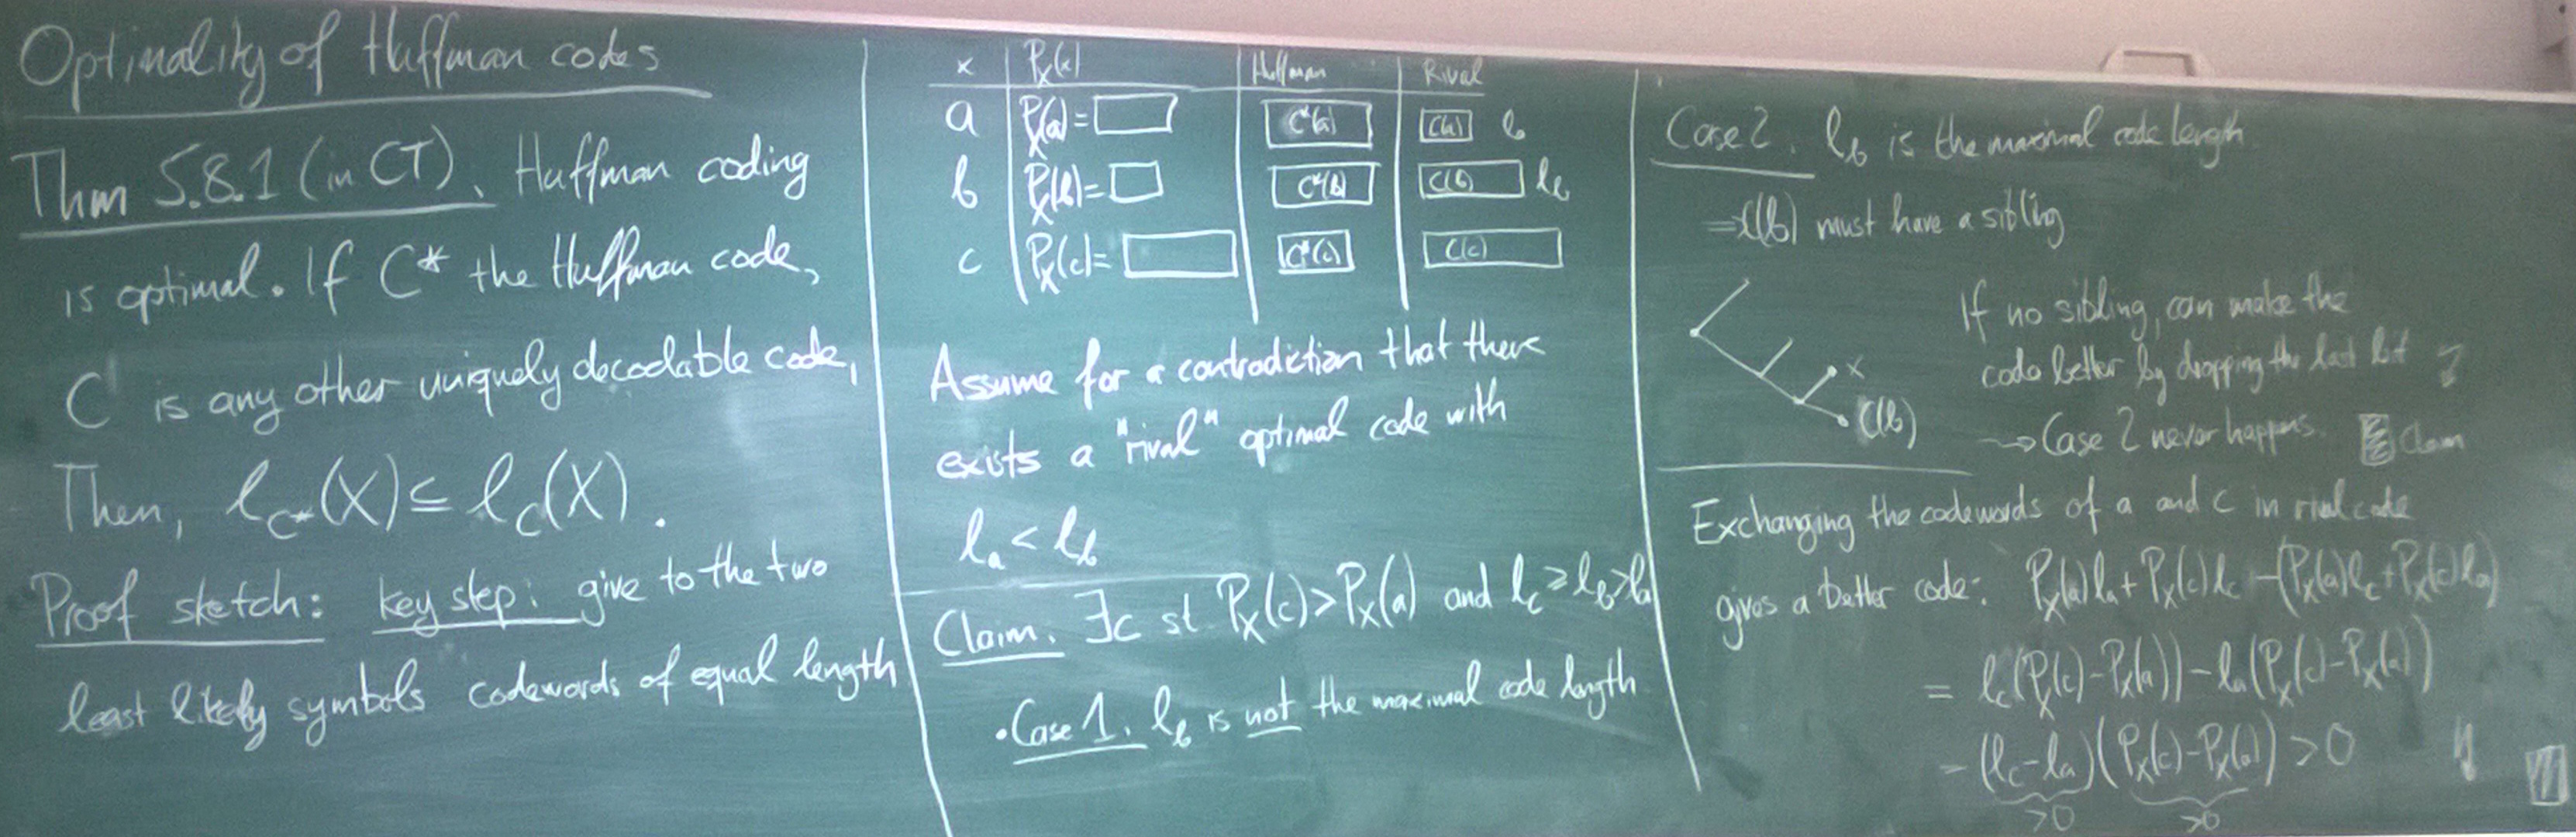 Optimality of Huffman codes
Thm 5.8.1 (in CT). Huffman coding
is optimal. If C* the Huffman code,
C is any other uniquely decodable code,
Then, l_C*(X) ≤ l_C(X).
Proof sketch: key step: give to the two
least likely symbols codewords of equal length
x P_X(x) Huffman Rival
a P_X(a)= C*(a) C(a) l
b P_X(b)= C*(b) C(b) l_b
c P_X(c)= C*(c) C(c)
Assume for a contradiction that there
exists a "rival" optimal code with
l_a < l_b
Claim. ∃c st. P_X(c)>P_X(a) and l_c ≥ l_b > l_a
• Case 1. l_b is not the maximal code length
Case 2. l_b is the maximal code length.
⇒ C(b) must have a sibling
If no sibling, can make the
code better by dropping the last bit
x
C(b)
→ Case 2 never happens. Claim
Exchanging the codewords of a and c in rival code
gives a better code: P_X(a)l_a + P_X(c)l_c - (P_X(a)l_c + P_X(c)l_a)
= l_c(P_X(c)-P_X(a)) - l_a(P_X(c)-P_X(a))
= (l_c-l_a)(P_X(c)-P_X(a)) > 0
>0 >0